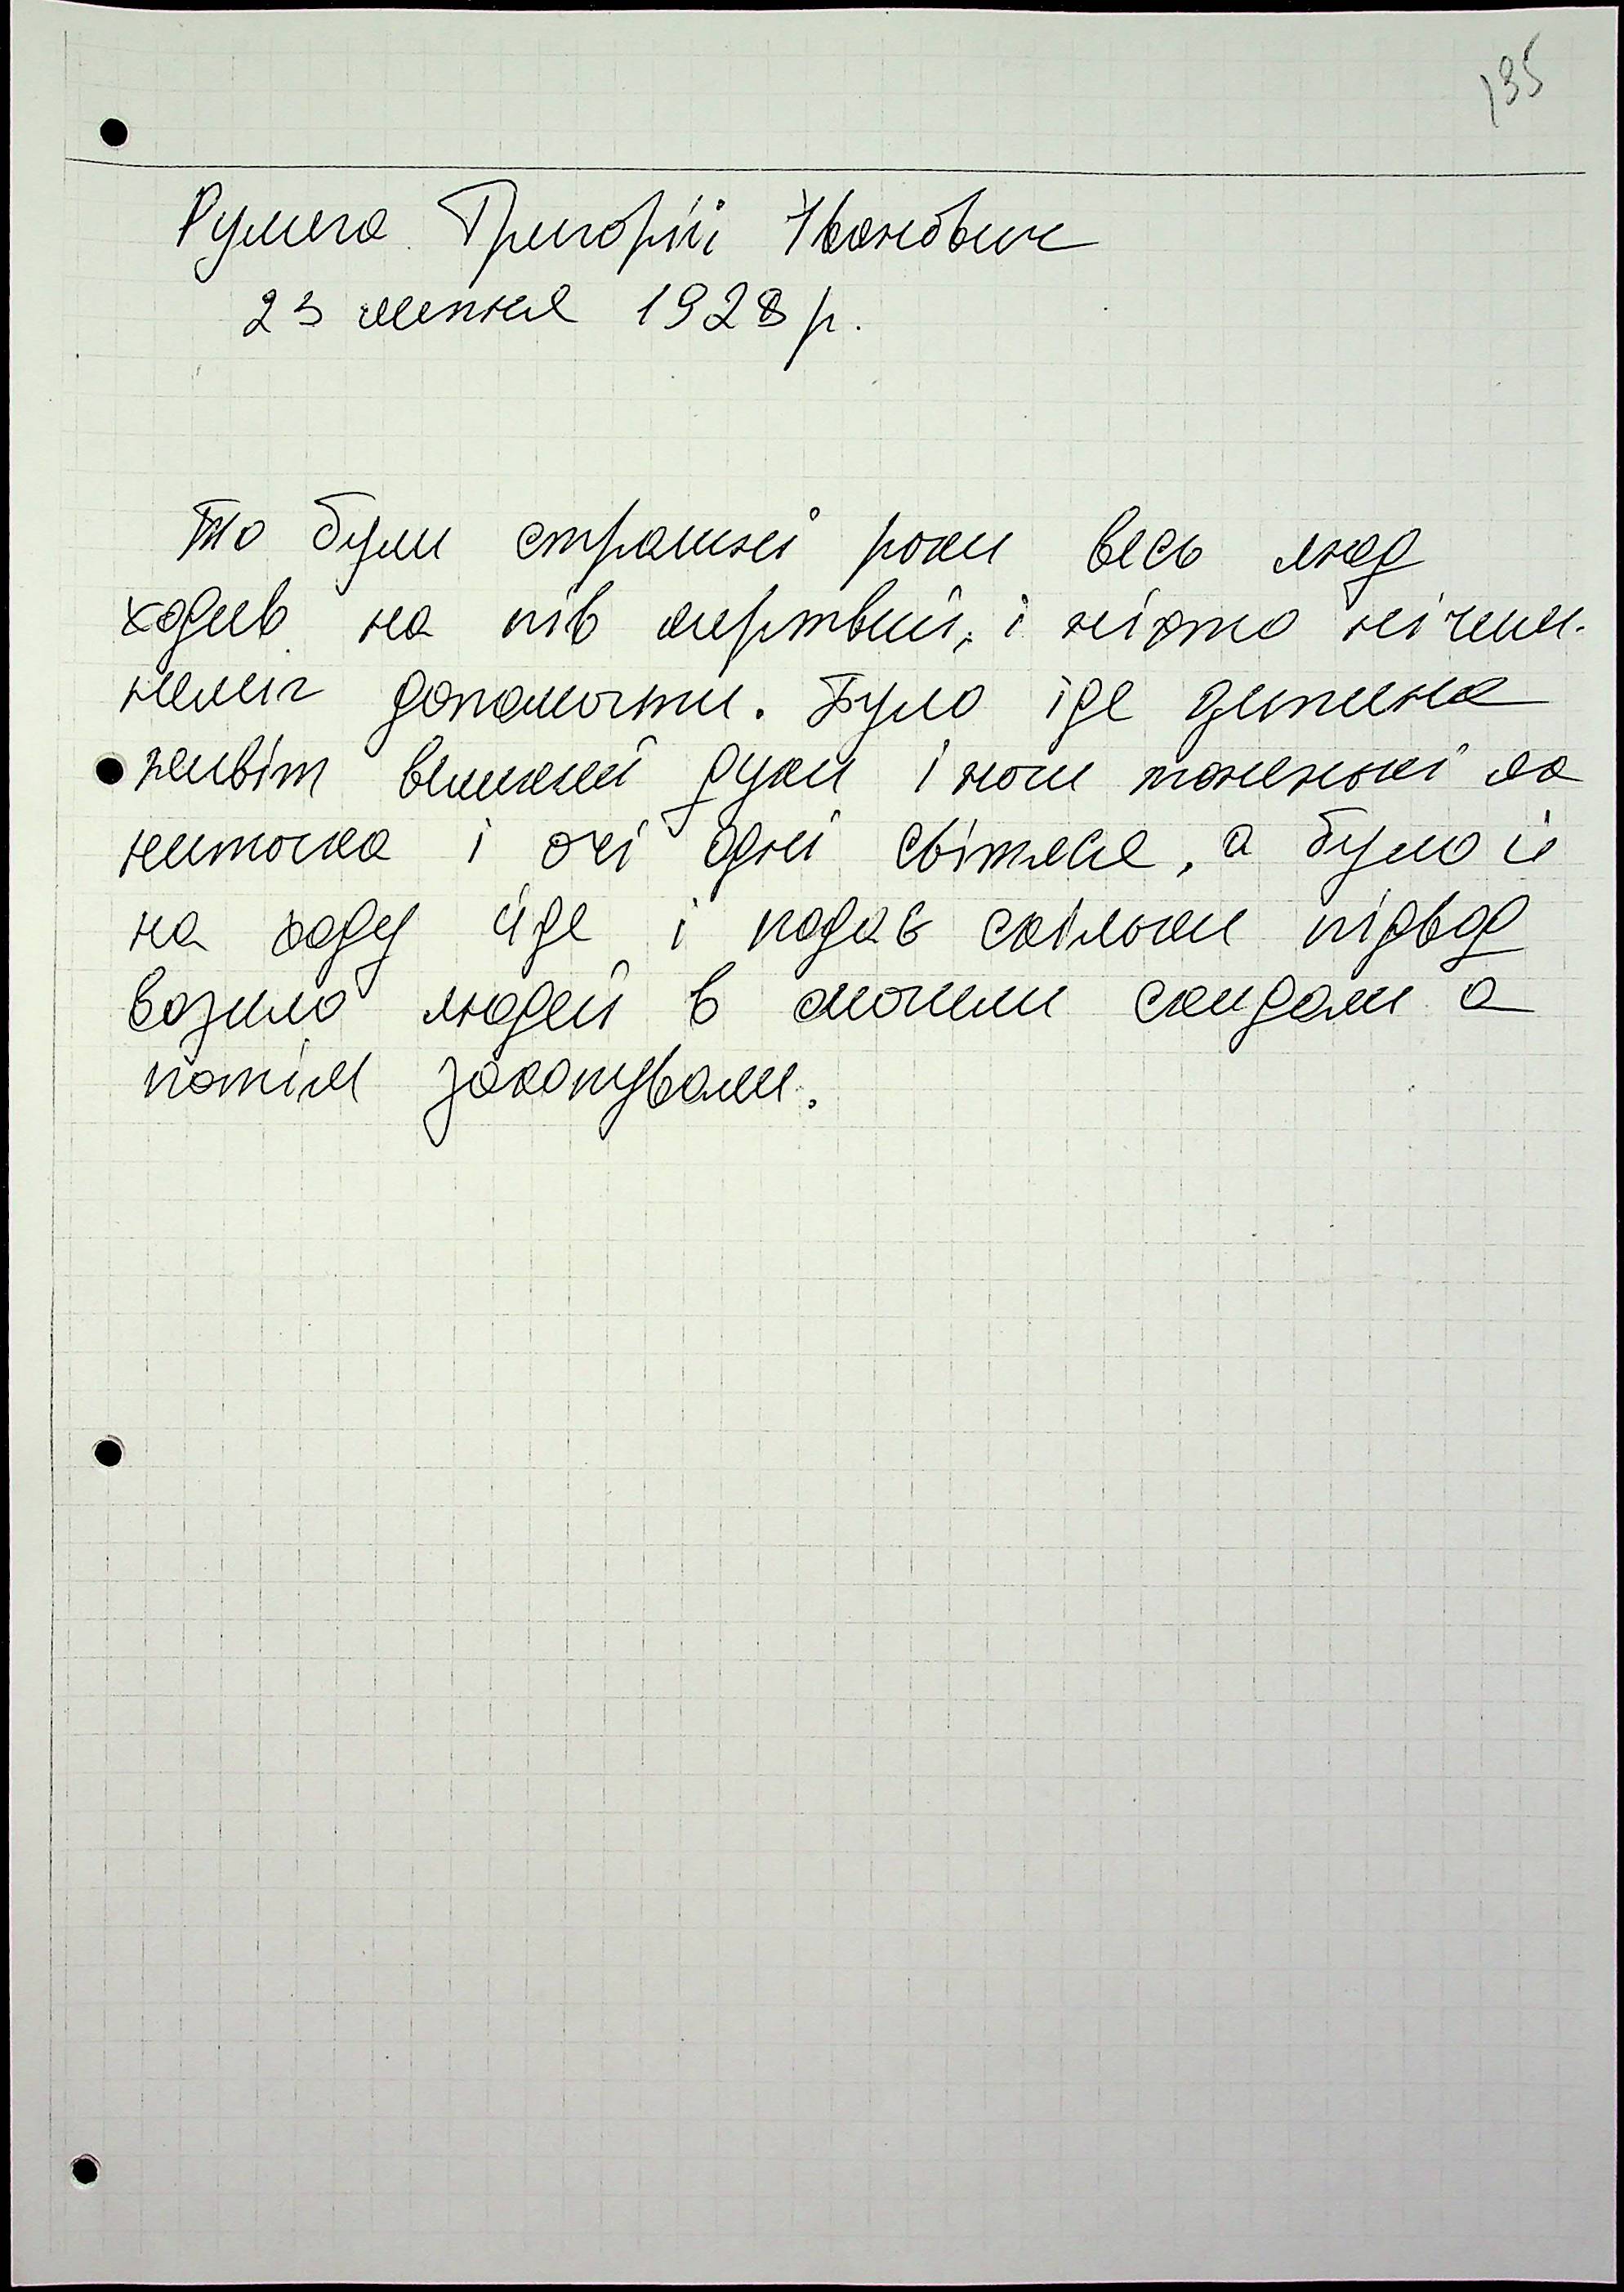 135
Румега Григорій Іванович
23 липня 1928 р.
То були страшні роки весь люд
ходив на пів мертвий, і ніхто нічим
неміг допомогти. Було іде дитина
живіт великий руки і ноги тоненькі як
ниточка і очі одні світяся, а було й
на ходу іде і падає скільки підвод
возило людей в могили скидали а
потім закопували.